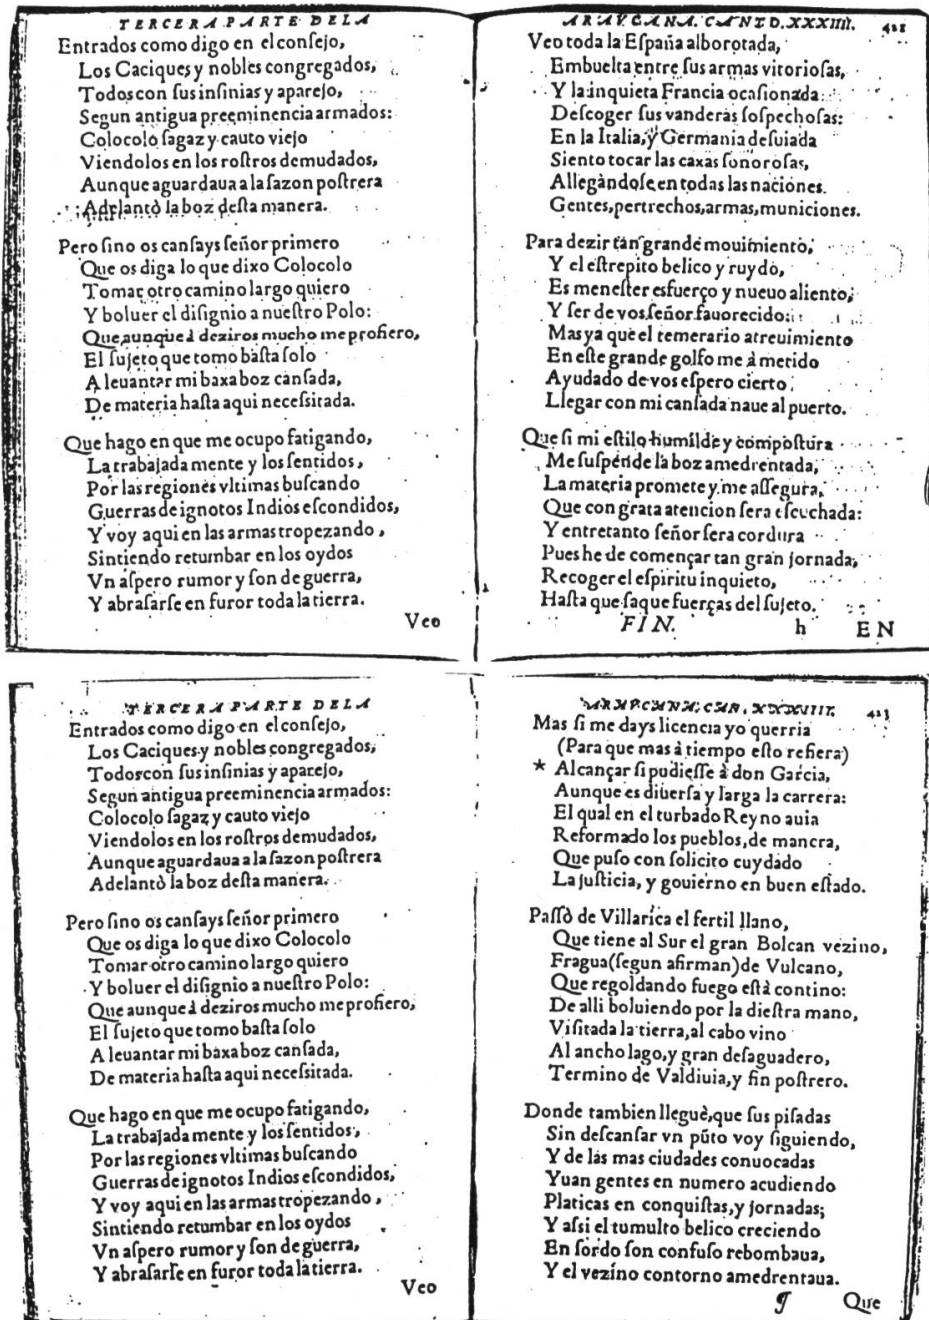 TERCERA PARTE DELA
Entrados como digo en el conſejo,
Los Caciques y nobles congregados,
Todos con ſus inſinias y aparejo,
Segun antigua preeminencia armados:
Colocolo ſagaz y cauto viejo
Viendolos en los roſtros demudados,
Aunque aguardaua a la ſazon poſtrera
Adelantò la boz deſta manera.
Pero ſino os canſays ſeñor primero
Que os diga lo que dixo Colocolo
Tomar otro camino largo quiero
Y boluer el diſignio a nueſtro Polo:
Que aunque à deziros mucho me profiero,
El ſujeto que tomo baſta ſolo
A leuantar mi baxa boz canſada,
De materia haſta aqui neceſsitada.
Que hago en que me ocupo fatigando,
La trabajada mente y los ſentidos,
Por las regiones vltimas buſcando
Guerras de ignotos Indios eſcondidos,
Y voy aqui en las armas tropezando,
Sintiendo retumbar en los oydos
Vn aſpero rumor y ſon de guerra,
Y abraſarſe en furor toda la tierra.
Veo
ARAVCANA. CANTO. XXXIIII. 421
Veo toda la Eſpaña alborotada,
Embuelta entre ſus armas vitorioſas,
Y la inquieta Francia ocaſionada
Deſcoger ſus vanderas ſoſpechoſas:
En la Italia, y Germania deſuiada
Siento tocar las caxas ſonoroſas,
Allegàndoſe en todas las naciones.
Gentes, pertrechos, armas, municiones.
Para dezir tan grande mouimiento,
Y el eſtrepito belico y ruydo,
Es meneſter esfuerço y nueuo aliento,
Y ſer de vos ſeñor fauorecido:
Mas ya que el temerario atreuimiento
En eſte grande golfo me à metido
Ayudado de vos eſpero cierto
Llegar con mi canſada naue al puerto.
Que ſi mi eſtilo humilde y compoſtura
Me ſuſpende la boz amedrentada,
La materia promete y me aſſegura,
Que con grata atencion ſera eſcuchada:
Y entretanto ſeñor ſera cordura
Pues he de començar tan gran jornada,
Recoger el eſpiritu inquieto,
Haſta que ſaque fuerças del ſujeto.
FIN. h EN
TERCERA PARTE DELA
Entrados como digo en el conſejo,
Los Caciques y nobles congregados,
Todos con ſus inſinias y aparejo,
Segun antigua preeminencia armados:
Colocolo ſagaz y cauto viejo
Viendolos en los roſtros demudados,
Aunque aguardaua a la ſazon poſtrera
Adelantò la boz deſta manera.
Pero ſino os canſays ſeñor primero
Que os diga lo que dixo Colocolo
Tomar otro camino largo quiero
Y boluer el diſignio a nueſtro Polo:
Que aunque à deziros mucho me profiero,
El ſujeto que tomo baſta ſolo
A leuantar mi baxa boz canſada,
De materia haſta aqui neceſsitada.
Que hago en que me ocupo fatigando,
La trabajada mente y los ſentidos,
Por las regiones vltimas buſcando
Guerras de ignotos Indios eſcondidos,
Y voy aqui en las armas tropezando,
Sintiendo retumbar en los oydos
Vn aſpero rumor y ſon de guerra,
Y abraſarſe en furor toda la tierra.
Veo
ARAVCANA, CAN, XXXIIII. 423
Mas ſi me days licencia yo querria
(Para que mas à tiempo eſto refiera)
* Alcançar ſi pudieſſe à don Garcia,
Aunque es diuerſa y larga la carrera:
El qual en el turbado Reyno auia
Reformado los pueblos, de manera,
Que puſo con ſolicito cuydado
La juſticia, y gouierno en buen eſtado.
Paſſò de Villarica el fertil llano,
Que tiene al Sur el gran Bolcan vezino,
Fragua (ſegun afirman) de Vulcano,
Que regoldando fuego eſtà contino:
De alli boluiendo por la dieſtra mano,
Viſitada la tierra, al cabo vino
Al ancho lago, y gran deſaguadero,
Termino de Valdiuia, y fin poſtrero.
Donde tambien lleguè, que ſus piſadas
Sin deſcanſar vn pũto voy ſiguiendo,
Y de las mas ciudades conuocadas
Yuan gentes en numero acudiendo
Platicas en conquiſtas, y jornadas;
Y aſsi el tumulto belico creciendo
En ſordo ſon confuſo rebombaua,
Y el vezino contorno amedrentaua.
¶ Que